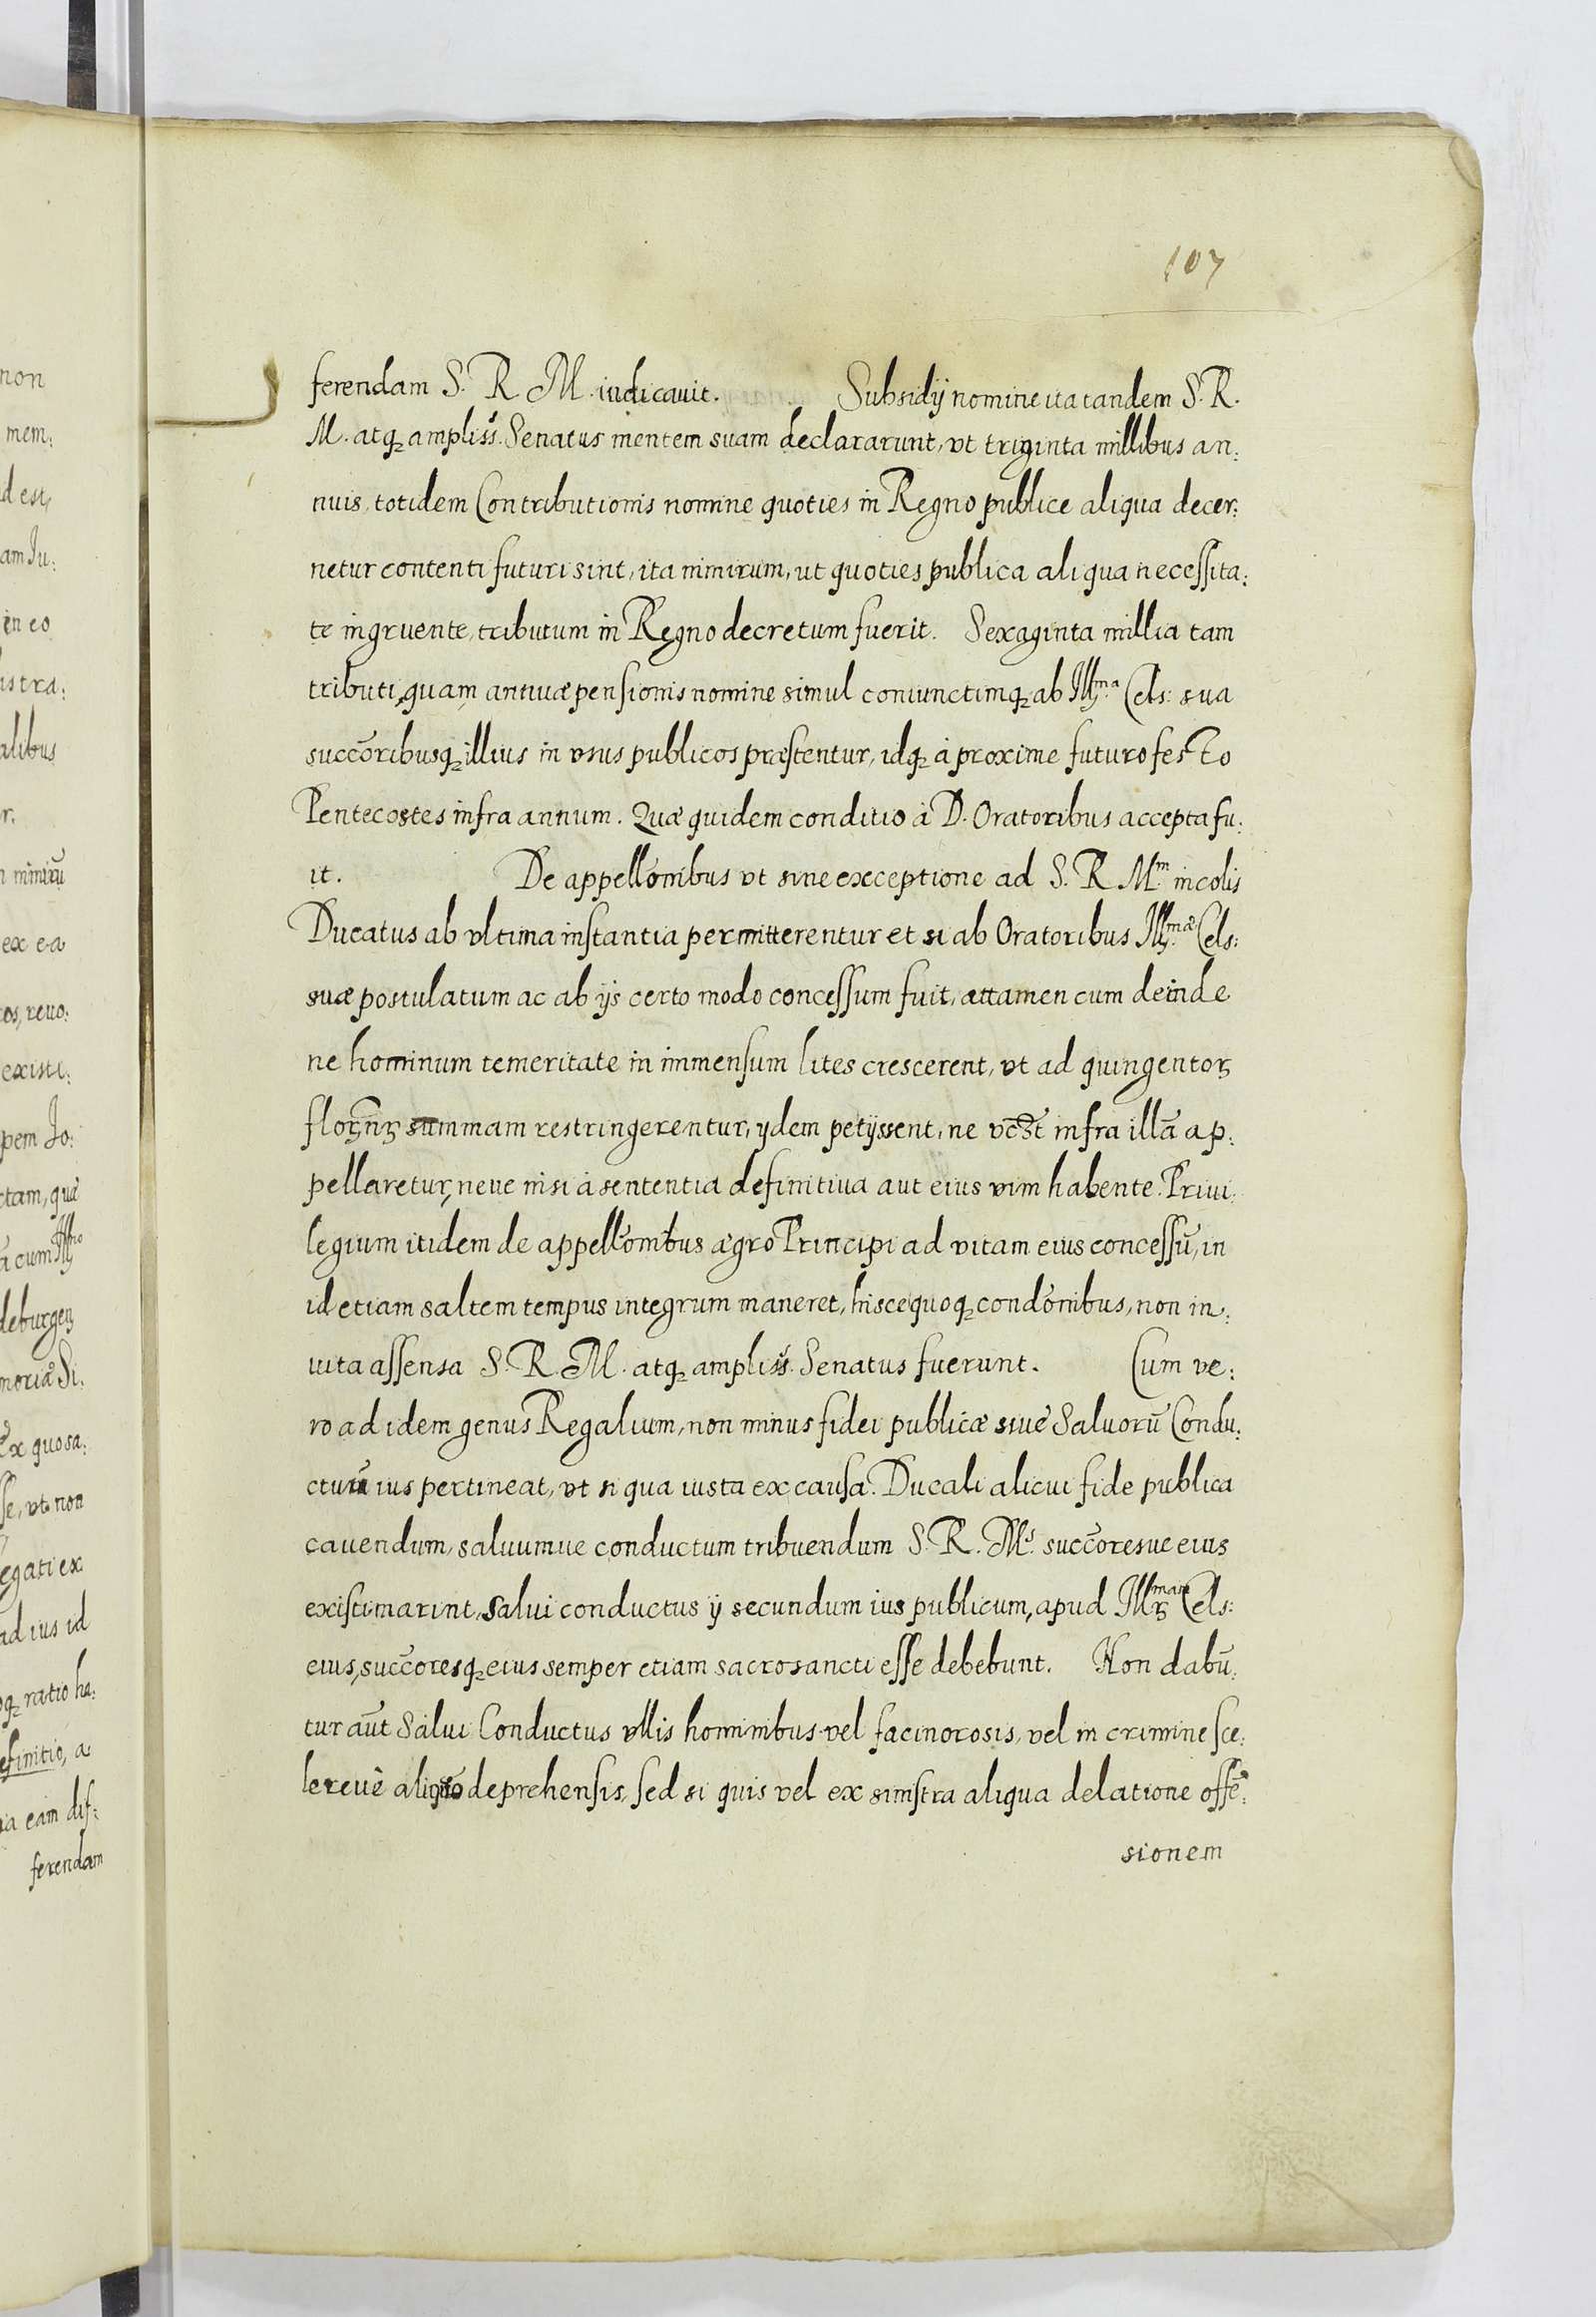 107
ferendam S. R. M. iudicauit. Subsidij nomine ita tandem S. R.
M. atq; ampliss. Senatus mentem suam declararunt, vt triginta millibus an:
nuis, totidem Contributionis nomine quoties in Regno publice aliqua decer:
netur contenti futuri sint, ita nimirum, ut quoties publica aliqua necessita:
te ingruente, tributum in Regno decretum fuerit. Sexaginta millia tam
tributi, quam annuæ pensionis nomine simul coniunctimq; ab Illma Cels: sua
succoribusq; illius in vsus publicos præstentur, idq; à proxime futuro festo
Pentecostes infra annum. Quæ quidem conditio à D. Oratoribus accepta fu:
it. De appellonibus vt sine exceptione ad S. R. Mm incolis
Ducatus ab vltima instantia permitterentur et si ab Oratoribus Illmæ Cels:
suæ postulatum ac ab ijs certo modo concessum fuit, attamen cum deinde
ne hominum temeritate in immensum lites crescerent, vt ad quingentoꝝ
summam restringerentur, ijdem petijssent, ne infra illā ap:
pellaretur, neue nisi à sententia definitiua aut eius vim habente. Priui:
legium itidem de appellonibus ægro Principi ad vitam eius concessū, in
id etiam saltem tempus integrum maneret, hisce quoq; condonibus, non in:
uita assensa S. R. M. atq; ampliss. Senatus fuerunt. Cum ve:
ro ad idem genus Regalium, non minus fidei publicæ siue Saluorū Condu:
ctuū ius pertineat, vt si qua iusta ex causa Ducali alicui fide publica
cauendum, saluumue conductum tribuendum S. R. Ms. succoresue eius
existimarint, Salui conductus ij secundum ius publicum, apud Cels:
eius, succoresq; eius semper etiam sacrosancti esse debebunt. Non dabū:
tur aūt Salui Conductus vllis hominibus vel facinorosis, vel in crimine sce:
lereuè aliquo deprehensis, sed si quis vel ex sinistra aliqua delatione offē:
sionem
non
mem:
d est,
am Iu:
in eo
istra:
alibus
r.
nimirū
ex ea
os, reuo:
existi:
pem Jo:
ctam, quæ
cum
deburgen
moriæ Si:
Ex quo sa:
se, vt non
egati ex
ad ius id
oq; ratio ha:
efinitio, a
ia eam dif:
ferendam